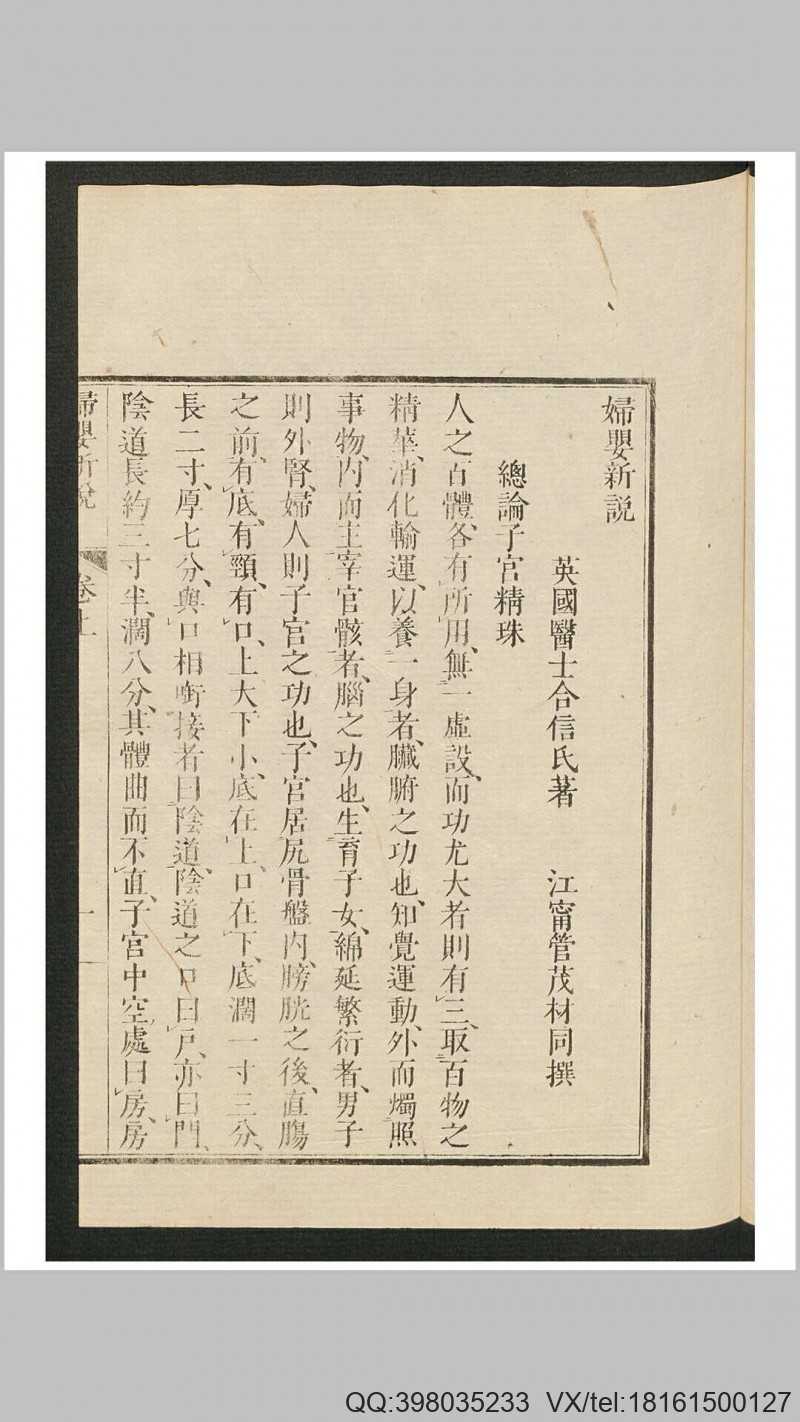 婦嬰新説
英國醫士合信氏著　江甯管茂材同撰
總論子宮精珠
人之百體、各有所用、無一虛設、而功尤大者則有三、取百物之
精華、消化輸運、以養一身者、臟腑之功也、知覺運動、外而燭照
事物、内而主宰官骸者、腦之功也、生育子女、綿延繁衍者、男子
則外腎、婦人則子宮之功也、子宮居尻骨盤内、膀胱之後、直腸
之前、有底、有頸、有口、上大下小、底在上、口在下、底濶一寸三分、
長二寸、厚七分、與口相衔接者曰陰道、陰道之口曰戶、亦曰門、
陰道長約三寸半、濶八分、其體曲而不直、子宮中空處曰房、房
婦嬰新説　卷上　一
QQ:398035233 VX/tel:18161500127